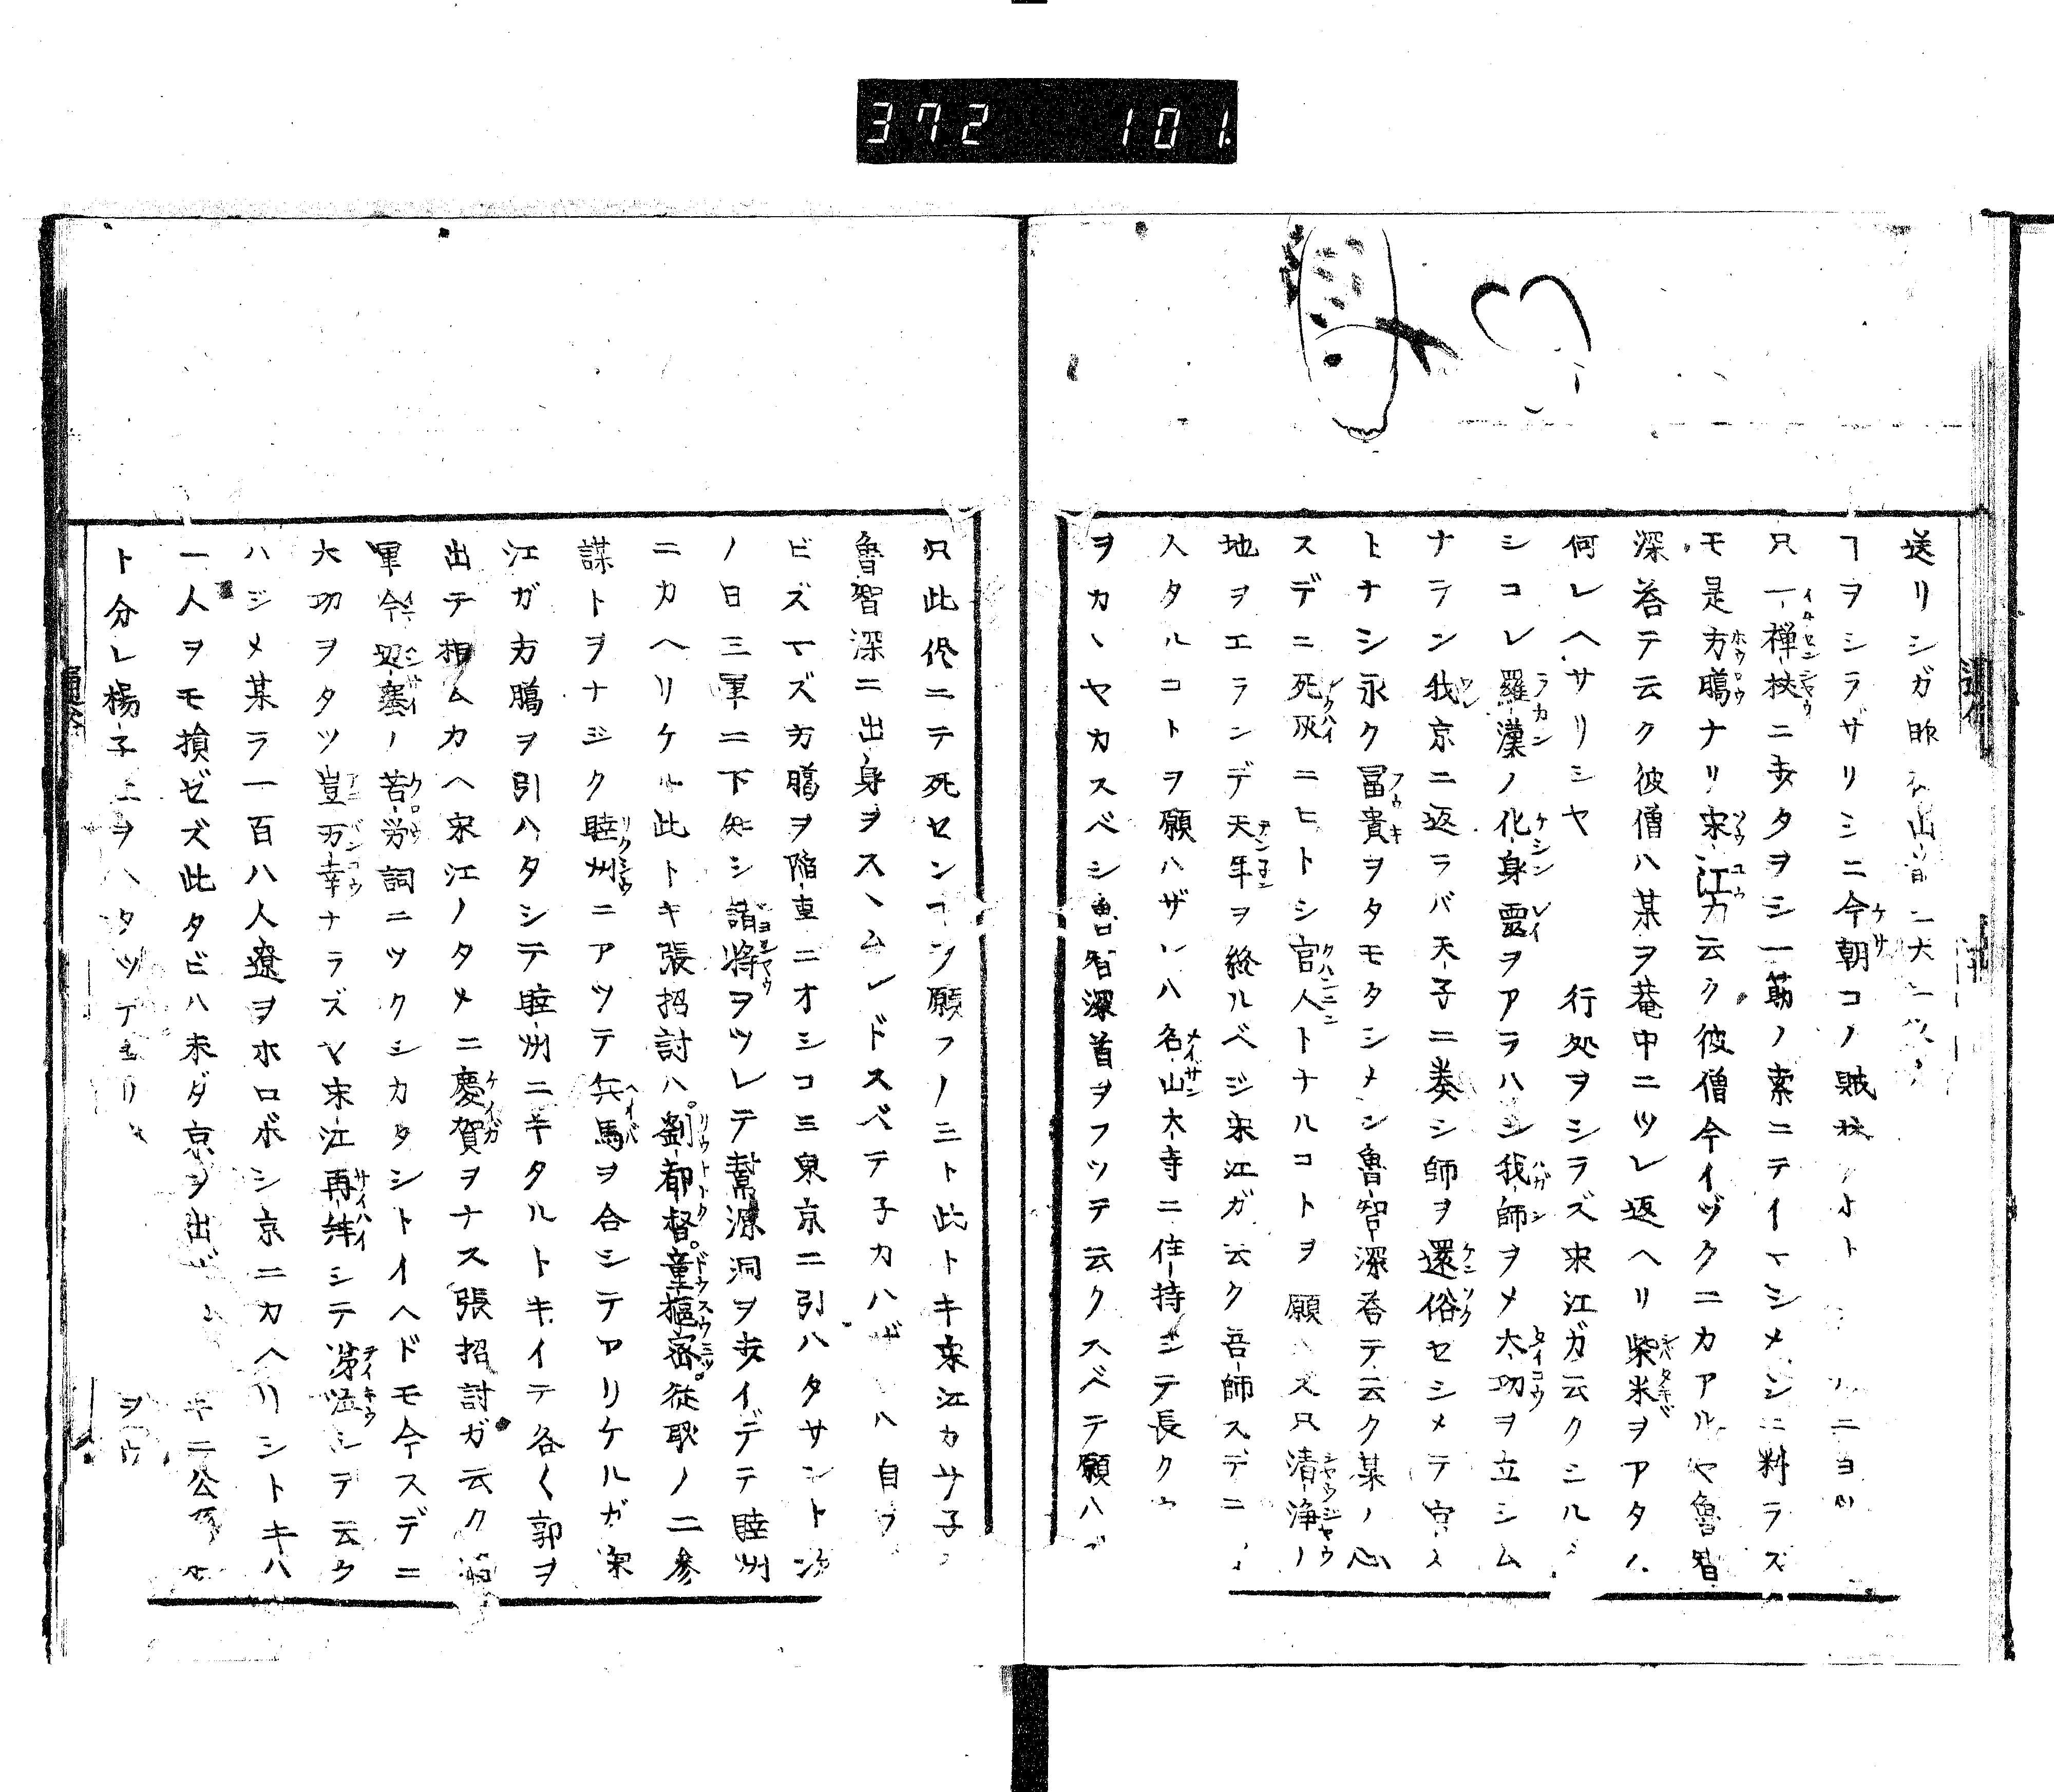 372 101
送リシガ昨
ヿヲシラザリシニ今朝コノ賊
只一禅杖ニ歩タヲシ一筋ノ索ニテイマシメシニ料ラズ
モ是方臈ナリ宋江カ云ク彼僧今イヅクニカアルヤ魯智
深荅テ云ク彼僧ハ某ヲ菴中ニツレ返ヘリ柴米ヲアタ
何レヘサリシヤ 行処ヲシラズ宋江ガ云クシル
シコレ羅漢ノ化身霊ヲアラハシ我師ヲメ大功ヲ立シム
ナラン我京ニ返ラバ天子ニ奏シ師ヲ還俗セシメテ官人
トナシ永ク冨貴ヲタモタシメン魯智深荅テ云ク某ノ心
スデニ死灰ニヒトシ官人トナルコトヲ願ハス只清浄ノ
地ヲエランデ天年ヲ終ルベシ宋江ガ云ク吾師スデニ
人タルコトヲ願ハザレハ名山大寺ニ住持シテ長ク
ヲカヽヤカスベシ魯智深首ヲフツテ云クスベテ願ハ
只此侭ニテ死センヿヲ願フノミト此トキ宋江カサ子
魯智深ニ出身ヲスヽムレドスベテ子カハザ ハ自
ビズマズ方臈ヲ陥車ニオシコミ東京ニ引ハタサント次
ノ日三軍ニ下知シ諸将ヲツレテ幫源洞ヲ歩イデテ睦州
ニカヘリケル此トキ張招討ハ劉都督童樞密従耿ノ二参
謀トヲナジク睦州ニアツテ兵馬ヲ合シテアリケルガ宋
江ガ方臈ヲ引ハタシテ睦州ニキタルトキイテ各〱郭ヲ
出テ相ムカヘ宋江ノタメニ慶賀ヲナス張招討ガ云ク
軍今辺塞ノ苦労詞ニツクシカタシトイヘドモ今スデニ
大功ヲタツ豈万幸ナラズヤ宋江再拝シテ涕泣シテ云ク
ハジメ某ラ一百八人遼ヲホロボシ京ニカヘリシトキハ
一人ヲモ損ゼズ此タビハ未ダ京ヲ出 キニ公孫
ト分レ楊子江ヲハタツテ ヲウ